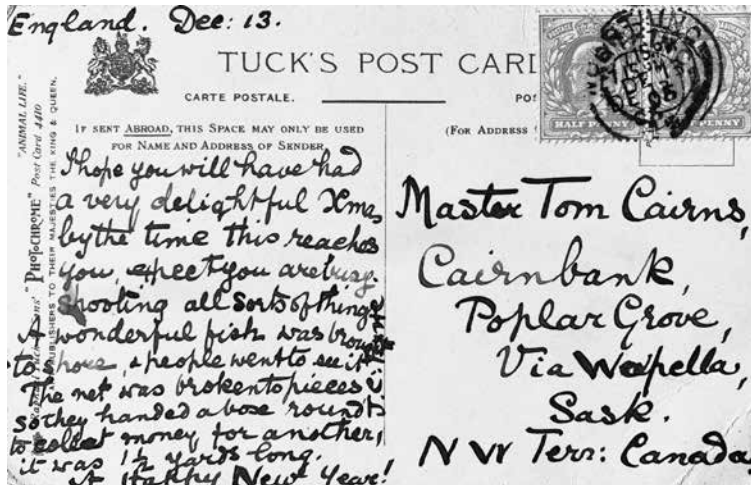 England. Dec: 13.
TUCK'S POST CARD
CARTE POSTALE.
IF SENT ABROAD, THIS SPACE MAY ONLY BE USED
FOR NAME AND ADDRESS OF SENDER
(FOR ADDRESS
HALF PENNY
"ANIMAL LIFE."
"PHOTOCHROME" Post Card 4410
PUBLISHERS TO THEIR MAJESTIES THE KING & QUEEN.
I hope you will have had
a very delightful Xmas,
by the time this reaches
you, expect you are busy
shooting all sorts of things
A wonderful fish was brought
to shore, & people went to see it
The net was broken to pieces
so they handed a box round
to collect money for another,
it was 1½ yards long.
A Happy New Year!
Master Tom Cairns,
Cairnbank,
Poplar Grove,
Via Wapella,
Sask.
N W Terr: Canada